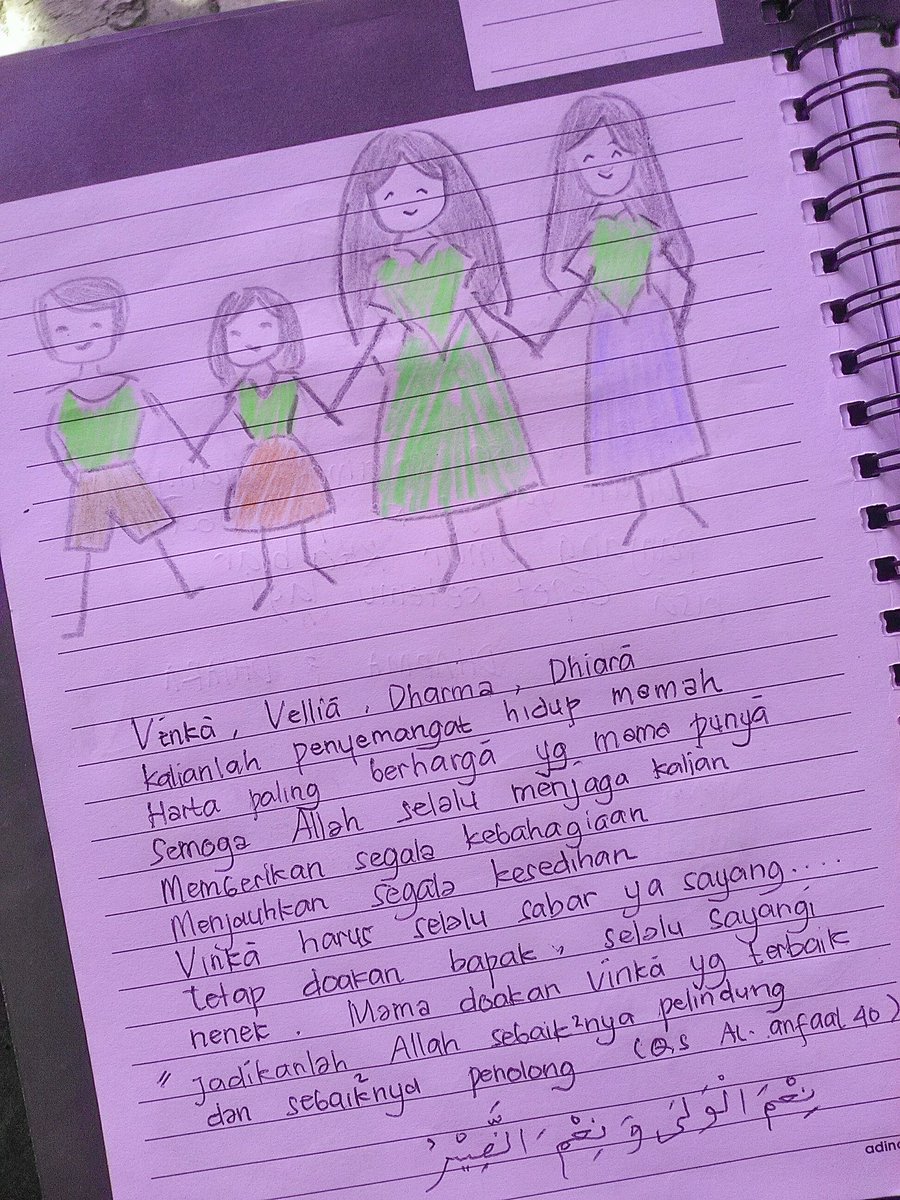 Vinka, Vellia, Dharma, Dhiara
kalianlah penyemangat hidup mamah
Harta paling berharga yg mama punya
Semoga Allah selalu menjaga kalian
Memberikan segala kebahagiaan
Menjauhkan segala kesedihan
Vinka harus selalu sabar ya sayang....
tetap doakan bapak, selalu sayangi
nenek. Mama doakan Vinka yg terbaik
"jadikanlah Allah sebaik²nya pelindung
dan sebaik²nya penolong (QS AL-anfaal 40)
نِعْمَ الْوَلَى وَ نِعْمَ